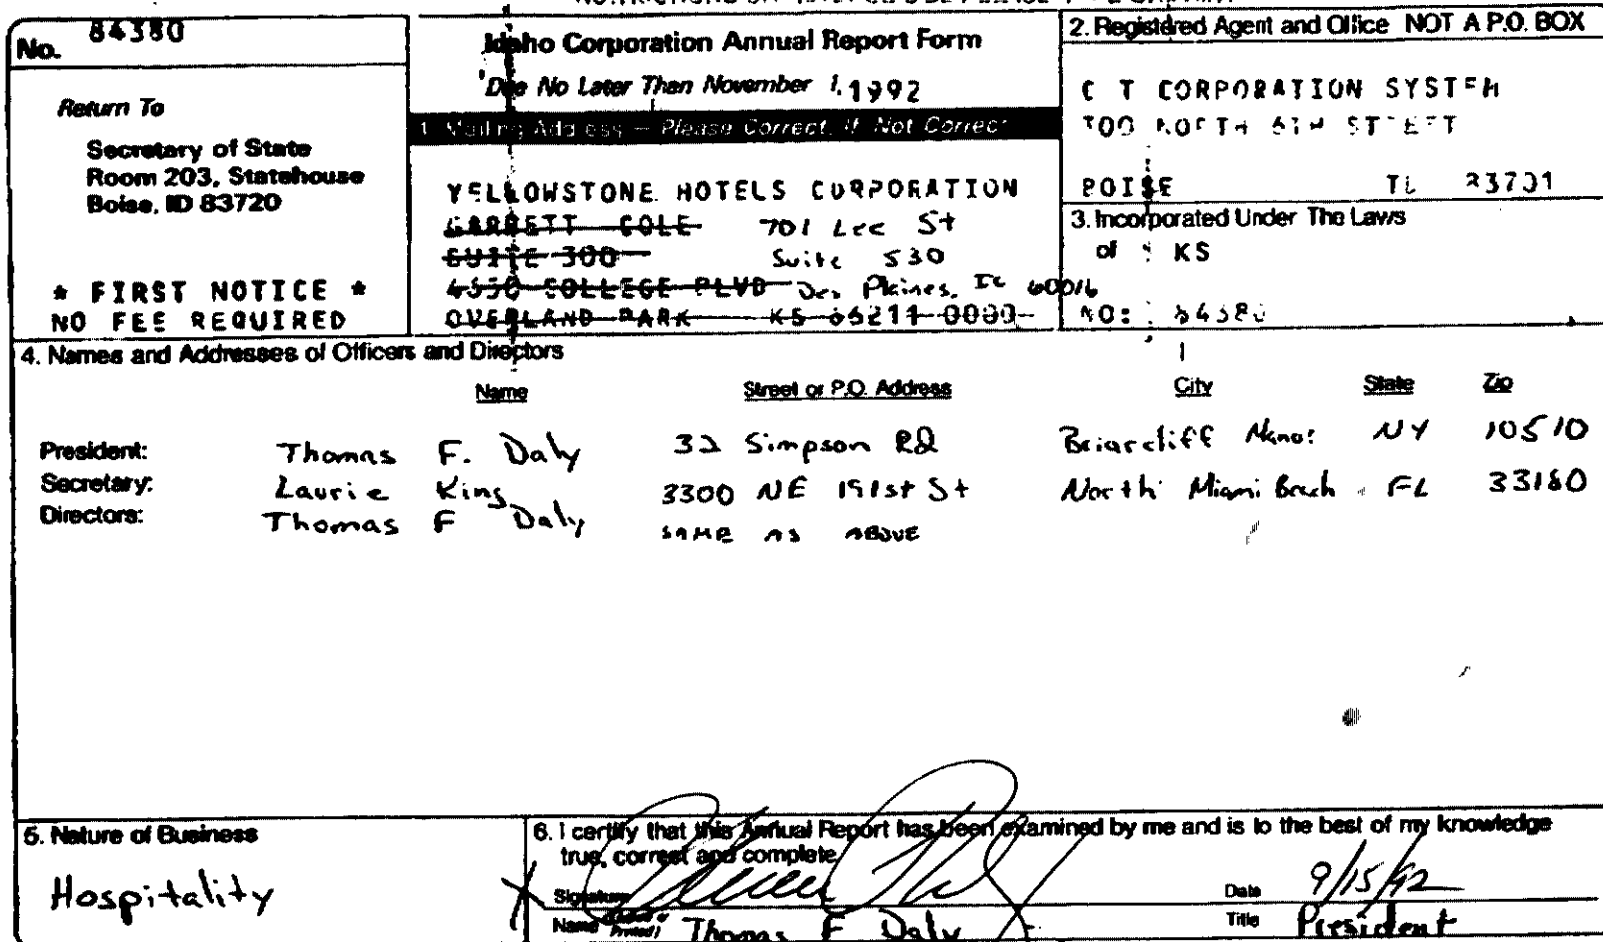 No. 84380
Idaho Corporation Annual Report Form
Due No Later Than November 1, 1992
Return To
Secretary of State
Room 203, Statehouse
Boise, ID 83720
* FIRST NOTICE *
NO FEE REQUIRED
1. Mailing Address — Please Correct, If Not Correct
YELLOWSTONE HOTELS CORPORATION
GARRETT COLE 701 Lee St
SUITE 300 Suite 530
COLLEGE Des Plaines, IL 60016
OVERLAND PARK KS 66211-0000
2. Registered Agent and Office NOT A P.O. BOX
C T CORPORATION SYSTEM
300 NORTH 6TH STREET
BOISE 83701
3. Incorporated Under The Laws
of KS
NO: 84380
4. Names and Addresses of Officers and Directors
Name Street or P.O. Address City State Zip
President: Thomas F. Daly 32 Simpson Rd Briarcliff Manor NY 10510
Secretary: Laurie King 3300 NE 191st St North Miami Beach FL 33180
Directors: Thomas F Daly SAME AS ABOVE
5. Nature of Business
Hospitality
6. I certify that this Annual Report has been examined by me and is to the best of my knowledge
true, correct and complete
Signature Date 9/15/92
Name Thomas F Daly Title President